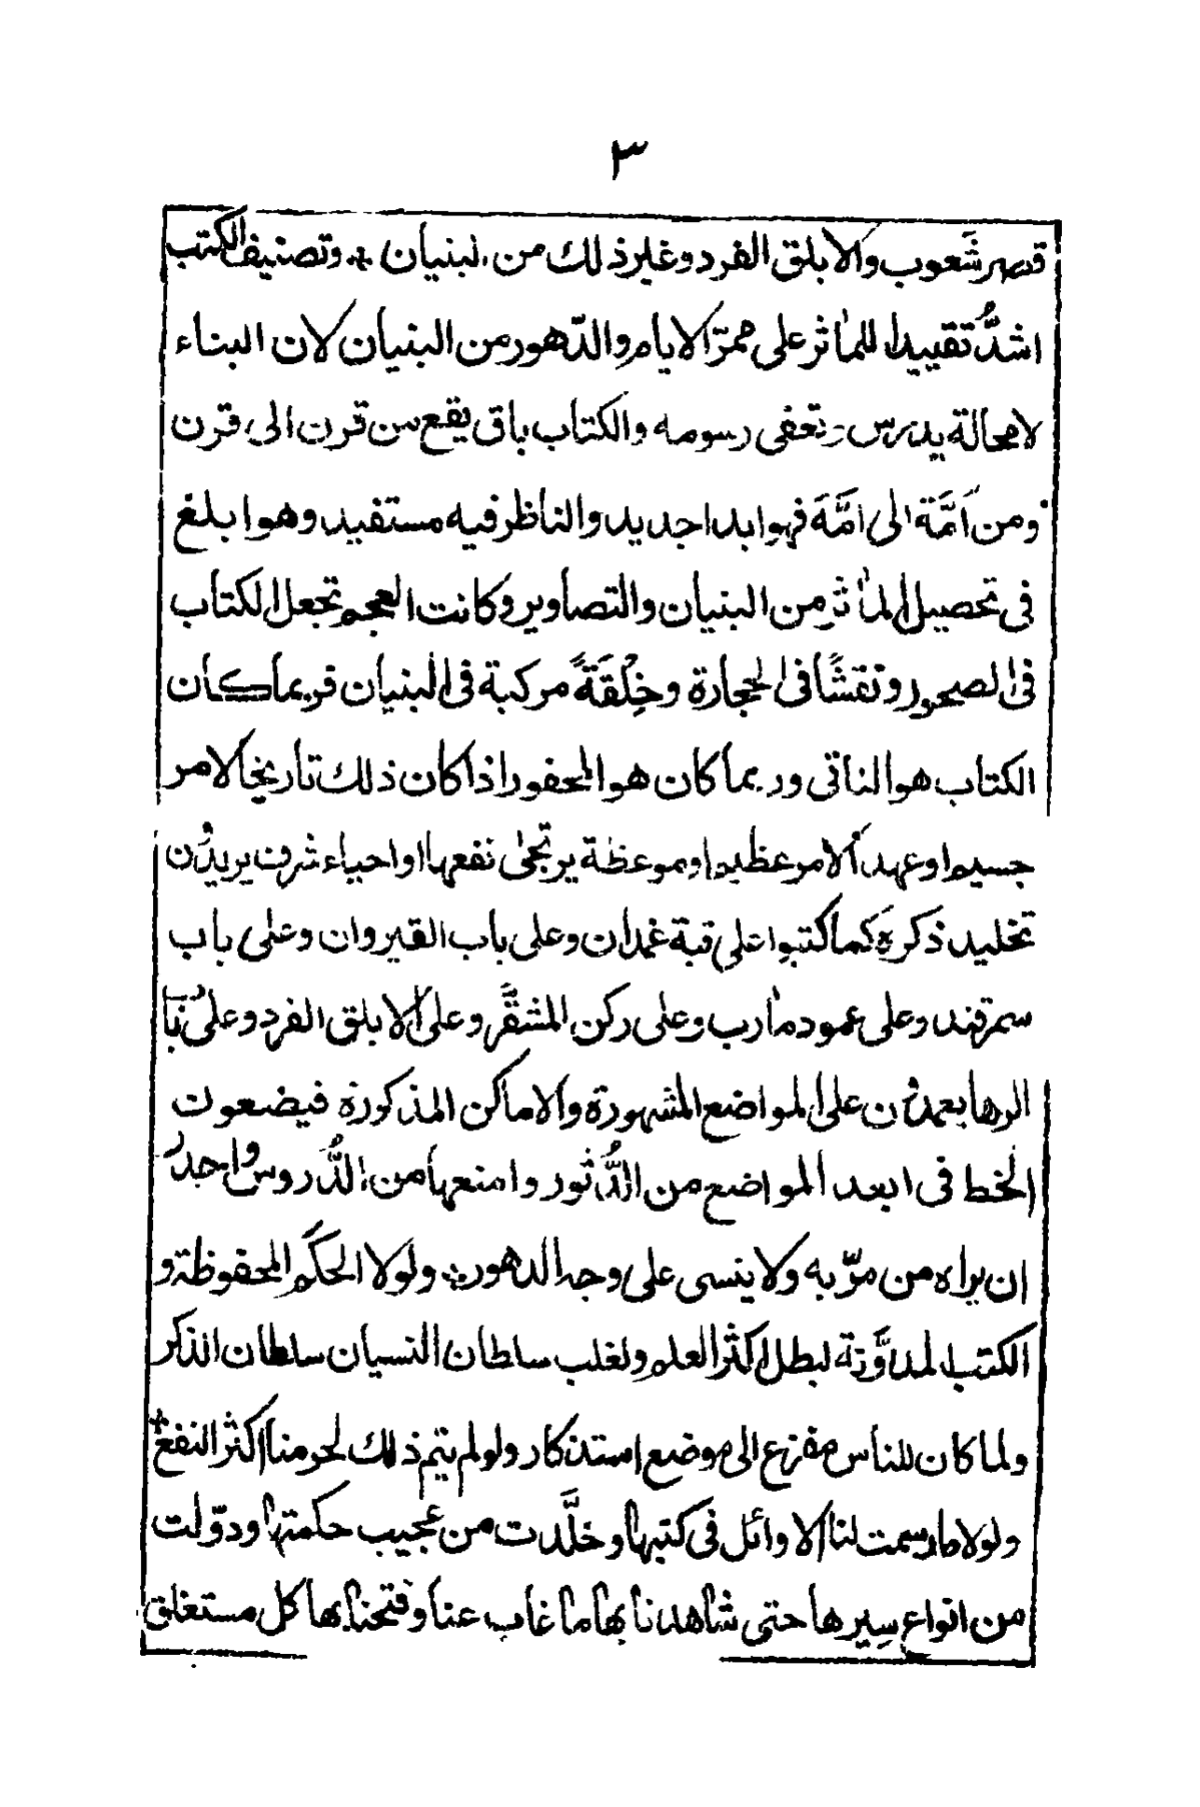 ٣
قصر شَعوب والابلق الفرد وغير ذلك من البنيان ؞ وتصنيف الكتب
اشدُّ تقييدا للمآثر على ممرّ الايام والدّهور من البنيان لان البناء
لا محالة يدرس وتعفى رسومه والكتاب باق يقع من قرن الى قرن
ومن اَمَّة الى اَمَّة فهو ابدا جديد والناظر فيه مستفيد وهو ابلغ
فى تحصيل المآثر من البنيان والتصاوير وكانت العجم تجعل الكتاب
فى الصخور ونقشًا فى الحجارة وخِلْقَةً مركبة فى البنيان فربما كان
الكتاب هو الناتى وربما كان هو المحفور اذا كان ذلك تاريخا لامر
جسيم او عهدا لامر عظيم او موعظة يرتجىٰ نفعها او احياء شرف يريدون
تخليد ذكره كما كتبوا على قبة غمدان وعلى باب القيروان وعلى باب
سمرقند وعلى عمود مأرب وعلى ركن المشقَّر وعلى الابلق الفرد وعلى باب
الرها بعمدون على المواضع المشهورة والاماكن المذكورة فيضعون
الخط فى ابعد المواضع من الدُّثور وامنعها من الدُّروس واجدر
ان يراه من مرّ به ولا ينسى على وجه الدهور ؞ ولولا الحكَم المحفوظة و
الكتب المدوَّنة لبطل اكثر العلم ولغلب سلطان النسيان سلطان الذكر
ولما كان للناس مفزع الى موضع استذكار ولو لم يتم ذلك لحرمنا اكثر النفع ؞
ولولا ما رسمت لنا الاوائل فى كتبها وخلَّدت من عجيب حكمتها ودوّنت
من انواع سِيرها حتى شاهدنا بها ما غاب عنا وفتحنا بها كل مستغلق